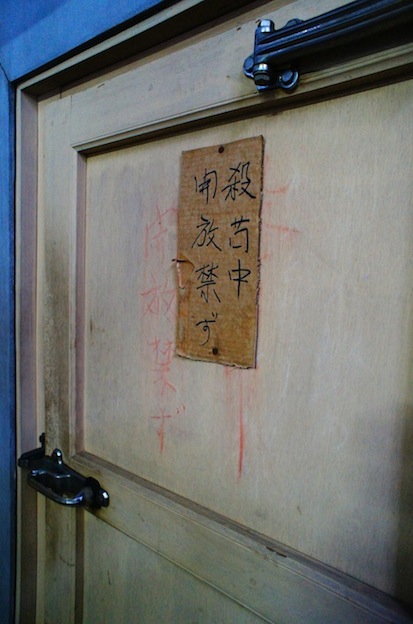 殺菌中
開放禁ず
開放禁ず